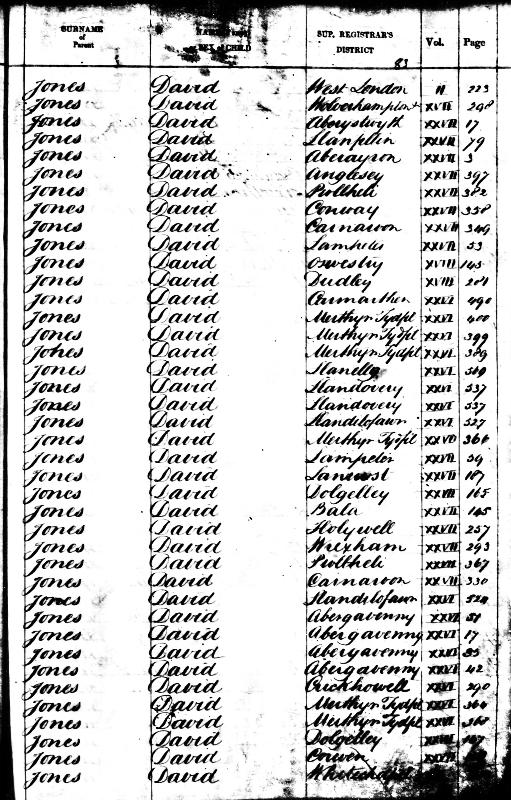 SURNAME of Parent SEX of CHILD SUP. REGISTRAR'S DISTRICT Vol. Page
83
Jones David West London II 223
Jones David Wolverhampton XVII 298
Jones David Aberystwyth XXVII 17
Jones David XXVII 79
Jones David Aberayron XXVII 3
Jones David Anglesey XXVII 397
Jones David Pwllheli XXVII 382
Jones David Conway XXVII 338
Jones David Carnarvon XXVII 349
Jones David XXVII 53
Jones David Oswestry XVIII 145
Jones David Dudley XVIII 281
Jones David Carmarthen XXVI 490
Jones David Merthyr Tydfil XXVI 400
Jones David Merthyr Tydfil XXVI 399
Jones David Merthyr Tydfil XXVI 389
Jones David Llanelly XXVI
Jones David Llandovery XXVI 537
Jones David Llandovery XXVI 537
Jones David Llandilofawr XXVI 527
Jones David Merthyr Tydfil XXVI 366
Jones David Lampeter XXVII 59
Jones David Llanrwst XXVII 187
Jones David Dolgelley XXVII 165
Jones David Bala XXVII 145
Jones David Holywell XXVII 257
Jones David Wrexham XXVII 293
Jones David Pwllheli XXVII 367
Jones David Carnarvon XXVII 330
Jones David Llandilofawr XXVI 524
Jones David Abergavenny XXVI 51
Jones David Abergavenny XXVI 17
Jones David Abergavenny XXVI
Jones David Abergavenny XXVI 42
Jones David Crickhowell XXVI 290
Jones David Merthyr Tydfil XXVI 364
Jones David Merthyr Tydfil XXVI
Jones David Dolgelley
Jones David Corwen
Jones David Whitechapel